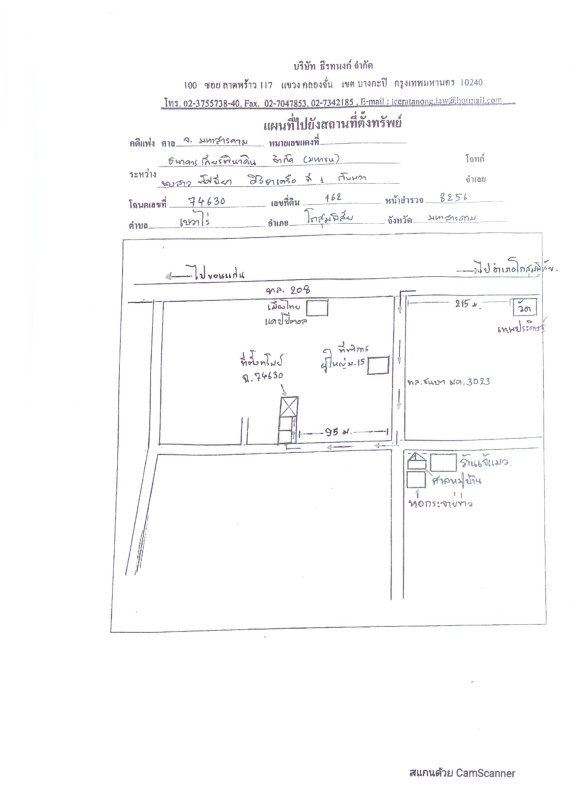 บริษัท ธีรทนงค์ จำกัด
100 ซอย ลาดพร้าว 117 แขวง คลองจั่น เขต บางกะปี กรุงเทพมหานคร 10240
โทร. 02-3755738-40, Fax. 02-7047853, 02-7342185 , E-mail : teeratanong.law@hotmail.com
แผนที่ไปยังสถานที่ตั้งทรัพย์
คดีแพ่ง ศาล จ. มหาสารคาม หมายเลขแดงที่
ธนาคารเกียรตินาคิน จำกัด (มหาชน) โจทก์
ระหว่าง
นางสาว ที่ 1 กับพวก จำเลย
โฉนดเลขที่ 74630 เลขที่ดิน 162 หน้าสำรวจ 8256
ตำบล เขวาไร่ อำเภอ โกสุมพิสัย จังหวัด มหาสารคาม
ไปขอนแก่น
ไปอำเภอโกสุมพิสัย
ทล. 208
เมืองไทย
แคปปิตอล
215 ม.
วัด
เทพประดิษฐ์
ที่ทำการ
ผู้ใหญ่ ม.15
ที่ตั้งทรัพย์
ฉ.74630
ทล.ชนบท มค. 3023
95 ม.
ร้านเจ๊แมว
ศาลหมู่บ้าน
หอกระจายข่าว
สแกนด้วย CamScanner